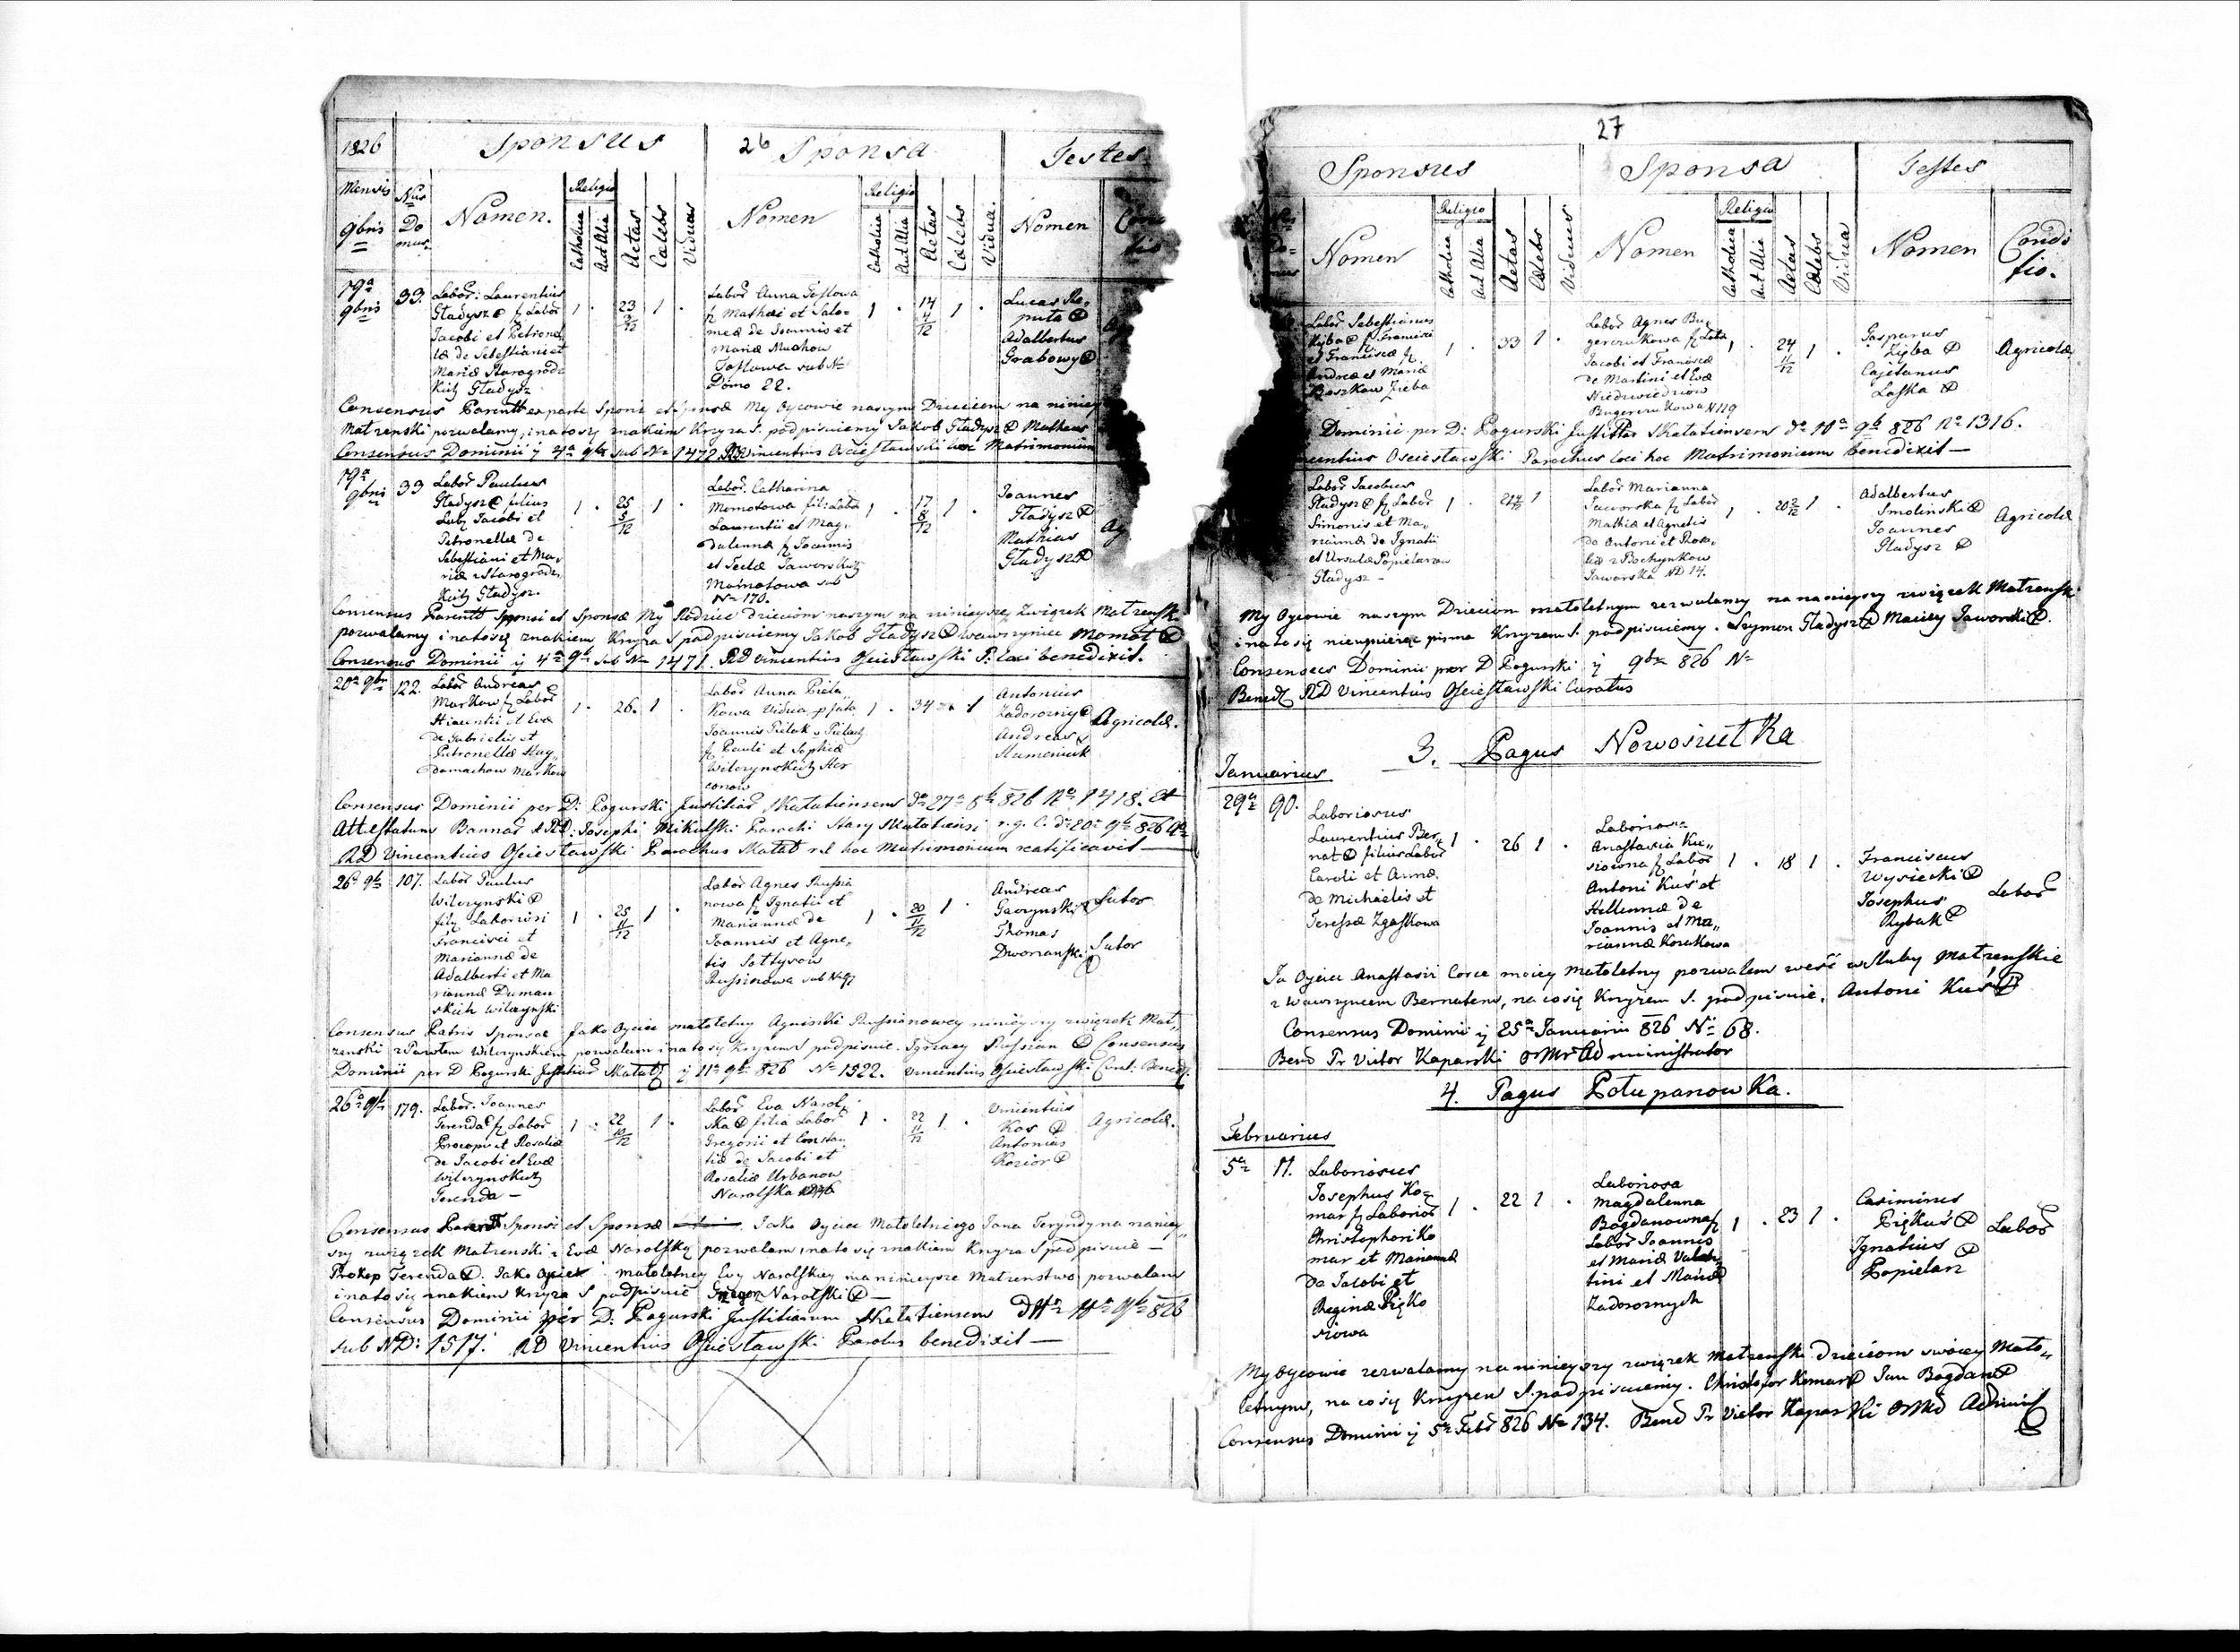 1826
Sponsus
26 Sponsa
Testes
Mensis
9bris
Nrus
Do
mus
Nomen.
Religio
Catholica
Aut Alia
Aetas
Caelebs
Viduus
Nomen
Religio
Catholica
Aut Alia
Aetas
Caelebs
Vidua.
Nomen
19a
9bris
33.
Labor: Laurentius
Gładysz f Labor
Jacobi et Petronel
lae de Sebestiani et
Mariae Starogrodz
Kich Gładysz
1 . 23 1 .
Labor Anna Tosłowa
Mathaei et Salo=
meae de Joannis et
Mariae Muchow
Tosłowa sub Nr
Domo 22.
1 . 14 4/12 1 .
Lucas Re,,
puta
Adalbertus
Grabowy
Consensus Parentt ex parte Sponsi et Sponsae My Oycowie naszym Dzieciom na niniey
Małzenski pozwalamy, i na to się znakiem Krzyża S. podpisuiemy Jakob Gładysz Matheus
Consensus Dominii 4a 9br sub Nr 1472 RD Vincentius Ościesławski hoc Matrimonium
19a
9bris
33
Labor Paulus
Gładysz filius
Jacobi et
Petronellae de
Sebestiani et Ma,,
riae Starogrodz,,
Kich Gładysz.
1 . 25 5/12 1 .
Labor. Catharina
Momotowa fil: Labor
Laurentii et Mag,,
dalennae f Joannis
et Teclae Jaworskich
Momotowa sub
Nr 170.
1 . 17 8/12 1 .
Joannes
Gładysz
Mathias
Gładysz
Consensus Parentt Sponsi et Sponsae My Rodzice dzieciom naszym na ninieyszy Związek Małzensk
pozwalamy i na to się znakiem Krzyża S podpisuiemy Jakob Gładysz Wawrzyniec Momot
Consensus Dominii 4a 9b sub Nr 1471. RD Vincentius Ościesławski P. Loci benedixit.
20a 9br
122.
Labor Andreas
Markow f Labor
Hiacinti et Evae
de Gabrielis et
Petronellae Hay,,
damachow Markow
1 . 26. 1 .
Labor Anna Piela,,
kowa Vidua p fata
Joannis Pielak
f Pauli et Sophiae
Wilczynskich
1 . 34 1
Antonius
Zadorozny
Andreas
Humeniuk
Agricolae.
Consensus Dominii per D: Pogurski Justitiar Skałatiensem 27a 8b 826 No 1418. Et
Attestatum Bannor RD: Josephi Mikulski Parochi Stary Skałatiensi r. g. l. 20a 9b 826
RD Vincentius Ościesławski Parochus Skałat hoc Matrimonium ratificavit
26a 9b
107.
Labor Paulus
Wilczynski
Laboriosi
Francisci et
Mariannae de
Adalberti et Ma
riannae Duman
skich Wilczynski
1 . 25 11/12 1 .
Labor Agnes Russia
nowa f Ignatii et
Mariannae de
Joannis et Agne,,
tis Sołtysow
Russianowa sub
1 . 20 11/12 1 .
Andreas
Gaczynski
Thomas
Dworzanski
Sutor
Sutor
Consensus Patris Sponsae Jako Oyciec małoletny Agniszki Russianowey ninieyszy związek Mał,,
zenski z Pawłem Wilczynskiem pozwalam i na to się Krzyżem S podpisuie. Ignacy Russian Consensus
Dominii per D Pogurski Justitiar Skałat 11a 9b 826 Nr 1322. Vincentius Ościesławski Benedi.
26a 9b
179.
Labor. Joannes
Terenda f Labor
Procopii et Rosaliae
de Jacobi et Evae
Wilczynskich
Terenda –
1 . 22 10/12 1 .
Labor Eva Narol,,
ska filia Labor
Gregorii et Constan
tiae de Jacobi et
Rosaliae Urbanow
Narolska
1 . 22 11/12 1 .
Vincentius
Kos
Antonius
Kozior
Agricolae.
Consensus Parentt Sponsi et Sponsae Jako Oyciec Małoletniego Jana Teryndy na niniey,,
szy związek Małzenski z Evą Narolską pozwalam, i na to się znakiem Krzyża S podpisuie –
Prokop Terenda. Jako Oyciec małoletney Evy Narolskiey na ninieysze Małzenstwo pozwalam
i na to się znakiem Krzyża S podpisuie Narolski –
Consensus Dominii per D: Pogurski Justitiarium Skałatiensem 11a 9b 826
sub N D: 1517. RD Vincentius Ościesławski Parochus benedixit –
27
Sponsus
Sponsa
Testes
Nomen
Religio
Catholica
Aut Alia
Aetas
Caelebs
Viduus
Nomen
Religio
Catholica
Aut Alia
Aetas
Caelebs
Vidua
Nomen
Condi
tio.
Labor Sebestianus
Zięba f Francisci
et Franciscae f
Andreae et Mariae
Baszkow Zięba
1 . 33 1 .
Labor Agnes Bu,,
gerczukowa f Labor
Jacobi et Franciscae
de Martini et Evae
Niedzwiedziow
Bugerczukowa N 119
1 . 24 11/12 1 .
Gasparus
Zięba
Cajetanus
Laska
Agricolae
Dominii per D: Pogurski Justitiar Skałatiensem 11a 9b 826 No 1316.
centius Ościesławski Parochus loci hoc Matrimonium benedixit –
Labor Jacobus
Gładysz f Labor
Simonis et Ma,,
riannae de Ignatii
et Ursulae Popielarow
Gładysz –
1 . 1
Labor Marianna
Jaworska f Labor
Mathiae et Agnetis
de Antoni et Rosa,,
liae z Bochynkow
Jaworska ND 14.
1 . 20 2/12 1 .
Adalbertus
Smolinski
Joannes
Gładysz
Agricolae
My Oycowie naszym Dzieciom małoletnym zezwalamy na ninieyszy związek Małzenski
i na to się nieumieiąc pisma Krzyżem S. podpisuiemy. Szymon Gładysz Maciey Jaworski.
Consensus Dominii per D Pogurski 9br 826 Nr
Bened RD Vincentius Ościesławski Curatus
3. Pagus Nowosiułka
Januarius
29a
90.
Laboriosus
Laurentius Ber,,
nat filius Labor
Caroli et Annae
de Michaelis et
Teressae Zgaskowa
1 . 26 1 .
Laboriosa
Anastasia Ku,,
siowna f Labor
Antoni Kuś et
Hellennae de
Joannis et Ma,,
riannae Korukowa
1 . 18 1 .
Franciscus
Wysiecki
Josephus
Rybak
Labor
Ja Oyciec Anastasii Corce moiey małoletny pozwalam weść w sluby Małzenskie
z Wawrzyncem Bernatem, na co się Krzyżem S. podpisuie. Antoni Kuś
Consensus Dominii 25a Januarii 826 No 68.
Bened Pr Victor Kaparski Administrator
4. Pagus Połupanowka.
Februarius
5a
11.
Laboriosus
Josephus Ko=
mar f Laborios
Christophori Ko
mar et Mariannae
de Jacobi et
Reginae Pięko
siowa
1 . 22 1 .
Laboriosa
Magdalenna
Bogdanowna f
Labor Joannis
et Mariae Valen
tini et Mariae
Zadoroznych
1 . 23 1 .
Casimirus
Piękuś
Ignatius
Popielarz
Labor
My Oycowie zezwalamy na ninieyszy związek Małzenski dzieciom swoiey Mało,,
letnym, na co się Krzyżem S. podpisuiemy. Christofor Komar Jan Bogdan
Consensus Dominii 5a Febr 826 Nr 134. Bened Pr Victor Kaparski Adminis